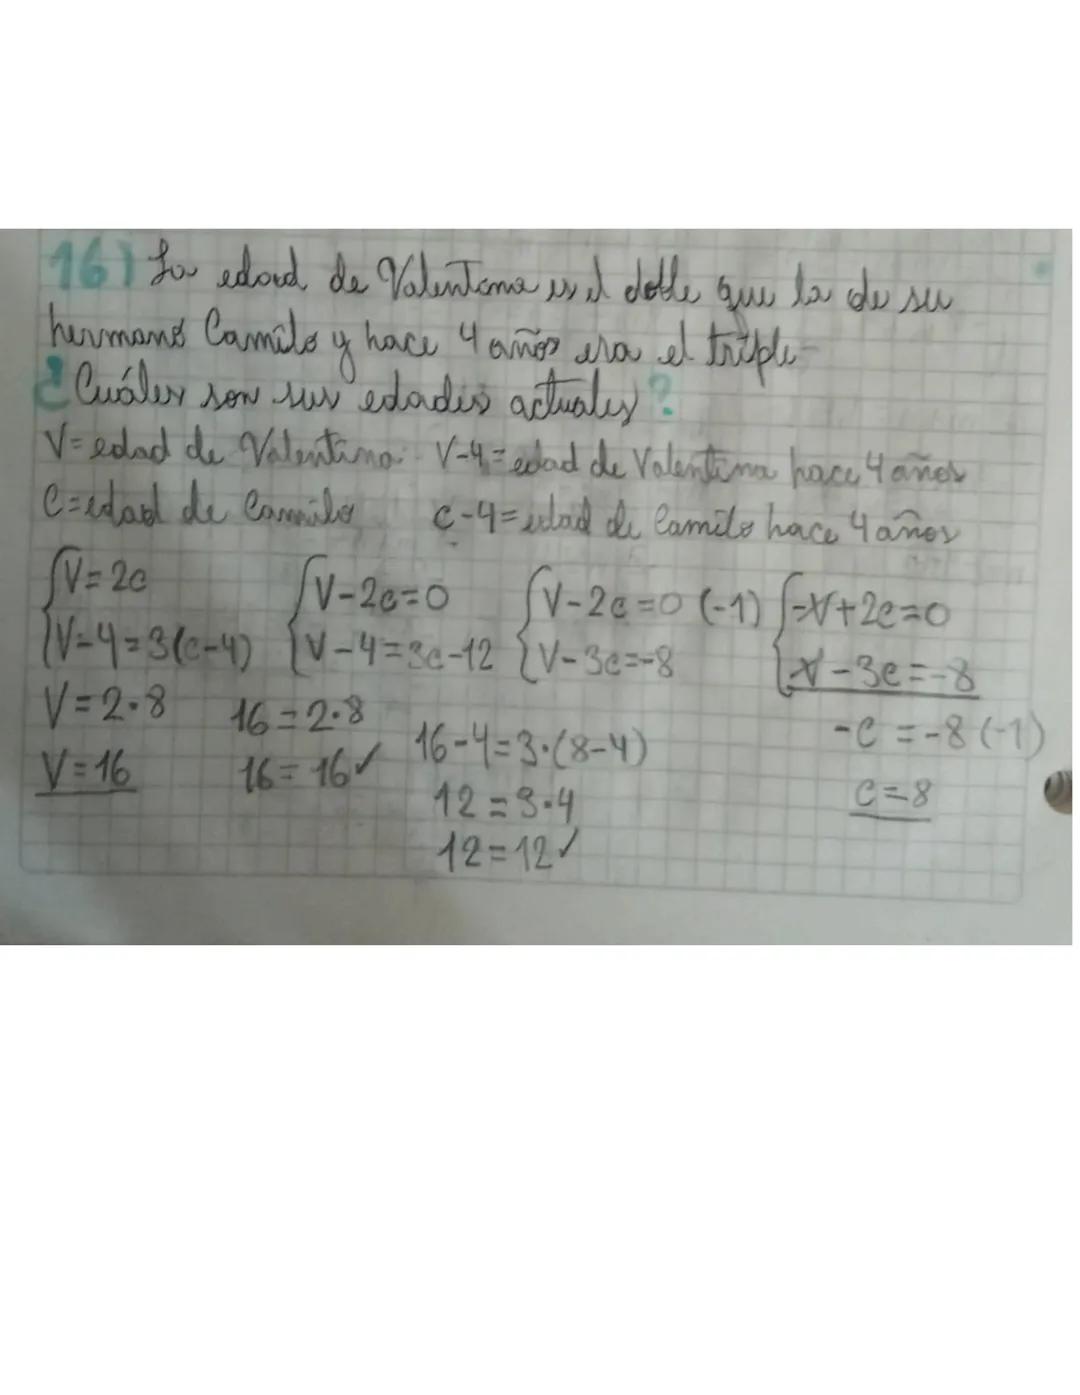 16) La edad de Valentina es el doble que la de su
hermano Camilo y hace 4 años era el triple
¿Cuáles son sus edades actuales?
V=edad de Valentina V-4=edad de Valentina hace 4 años
C=edad de Camilo c-4=edad de Camilo hace 4 años
{V=2c {V-2c=0 {V-2c=0 (-1) {-V+2c=0
V-4=3(c-4) V-4=3c-12 V-3c=-8 V-3c=-8
V=2·8 16=2·8 16-4=3·(8-4) -c=-8(-1)
V=16 16=16✓ 12=3·4 c=8
12=12✓